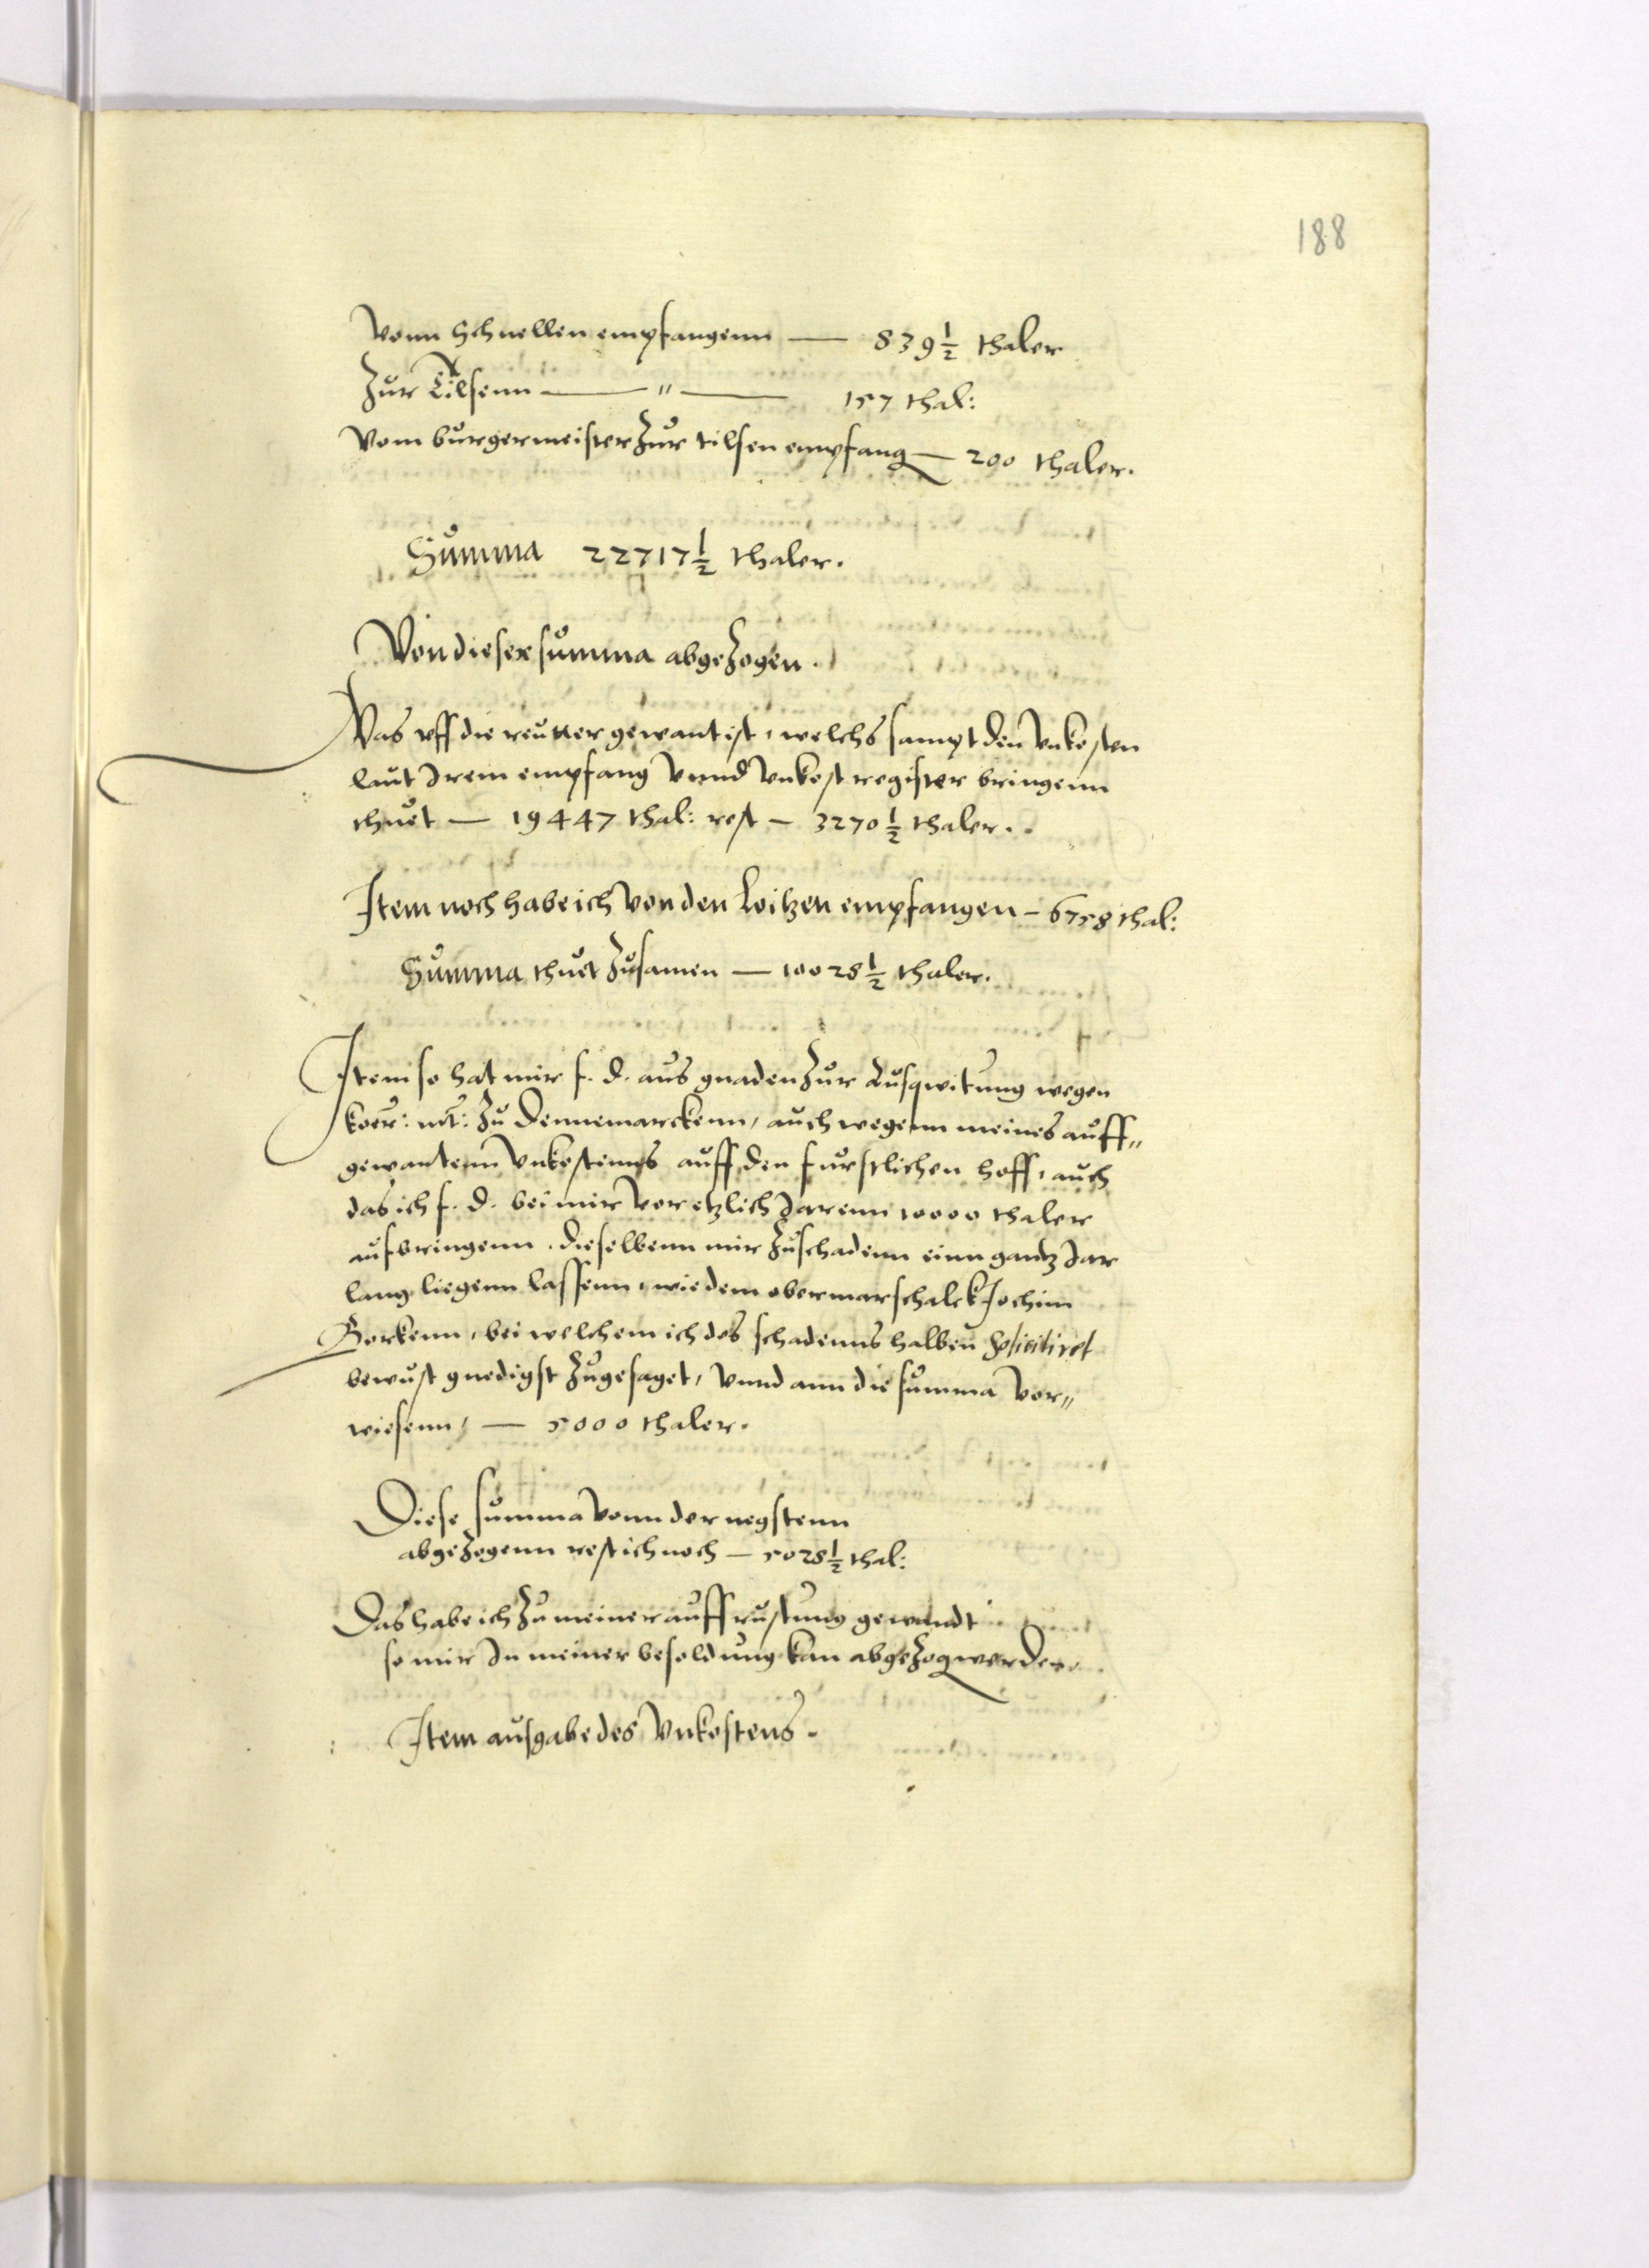 188
Vonn Schnellen empfangenn — 839 1/2 thaler
Zur Tilsenn — " — 157 thal:
Vom burgermeister zur tilsen empfang — 200 thaler.
Summa 22717 1/2 thaler.
Von dieser summa abgezogen.
Was uff die reutter gewant ist, welchs sampt den Vnkosten
laut Irem empfang Vnnd Vnkost register bringenn
thuet — 19447 thal: rest — 3270 1/2 thaler.
Item noch habe ich Von den Loitzen empfangen — 6758 thal:
Summa thuet zusamen — 10028 1/2 thaler.
Item so hat mir f. d. aus gnaden zur Ausqwitung wegen
koer: mt: zu Dennemarckenn, auch wegenn meines auff„
gewantenn Vnkostenns auff den furstlichen hoff, auch
das ich f. d. bei mir Vor etzlich Jarenn 10000 thaler
aufbringenn, dieselbenn mir zu schadenn einn gantz Jar
lang liegenn lassenn, wie dem obermarschalck Jochim
Borkenn, bei welchem ich des schadenns halben soliciitiret
bewust gnedigst zugesaget, Vnnd ann die summa Vor„
wiesenn, — 5000 thaler.
Diese summa Vonn der negstenn
abgezogenn rest ich noch — 5028 1/2 thal:
Das habe ich zu meiner auffrustung gewandt
so mir In meiner besoldung kan abgezog werden
Item ausgabe des Vnkostens.